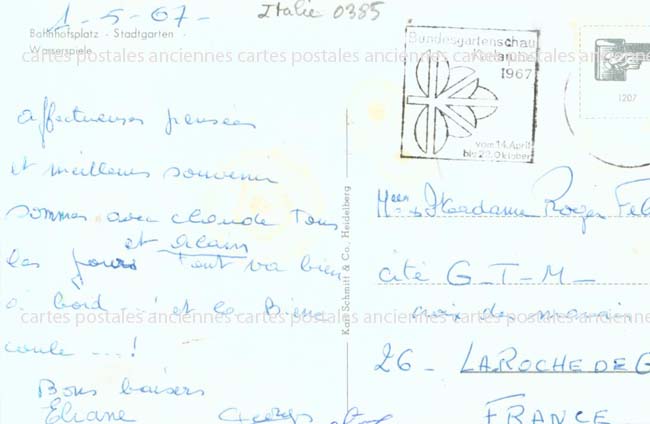 1-5-67-
Italie 0385
Bahnhofsplatz - Stadtgarten -
Wasserspiele
cartes postales anciennes cartes postales anciennes cartes postales anciennes
Bundesgartenschau
Karlsruhe
1967
vom 14. April
bis 22. Oktober
1207
affectueuses pensées
et meilleurs souvenir
sommes avec claude Tous
et Alain
les jours Tout va bien
à bord --- ! et la Biere
coule --- !
Bons baisers
Eliane
Karl Schmitt & Co. Heidelberg
Madame Roger
cité G-T-M-
cartes postales anciennes cartes postales anciennes cartes postales anciennes
26 - LA ROCHE DE G
FRANCE -